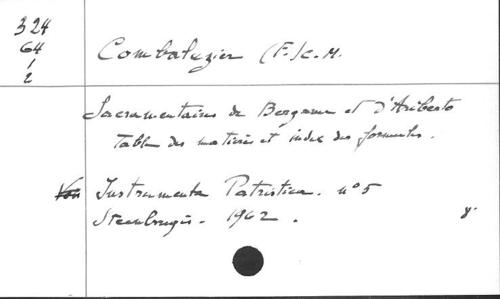 324
64
1
2
Combaluzier (F.) c.M.
Sacramentaires de Bergame et d'Ariberto
Tables des matières et index des formules.
Instrumenta Patristica. n° 5
Steenbrugis. 1962.